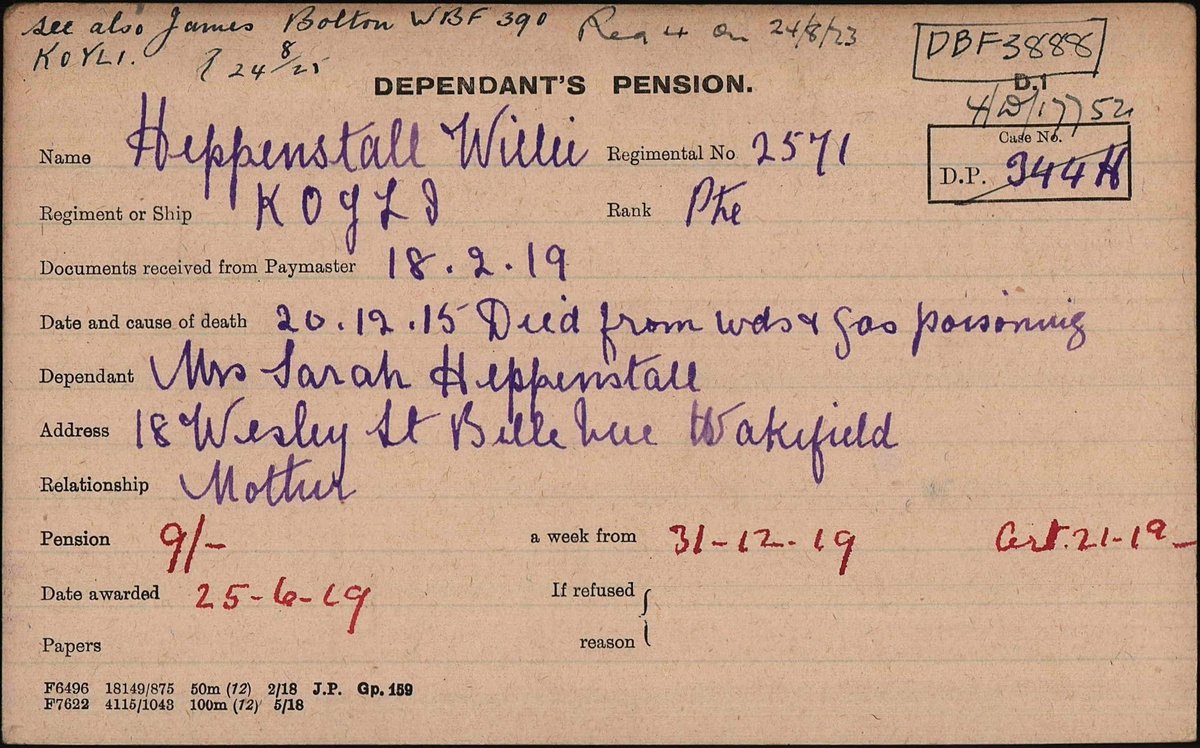 see also James Bolton WBF 390 Reg 4 on 24/8/23 DBF3888
KOYLI. 24/8/25
DEPENDANT'S PENSION. D.1
4/D/17752
Name Heppenstall Willie Regimental No 2571 Case No.
D.P. 344H
Regiment or Ship KOYLI Rank Pte
Documents received from Paymaster 18.2.19
Date and cause of death 20.12.15 Died from wds & gas poisoning
Dependant Mrs Sarah Heppenstall
Address 18 Wesley St Belle Vue Wakefield
Relationship Mother
Pension 9/- a week from 31-12-19 Art. 21-19-
Date awarded 25-6-19 If refused
Papers reason
F6496 18149/875 50m (12) 2/18 J.P. Gp. 159
F7622 4115/1043 100m (12) 5/18